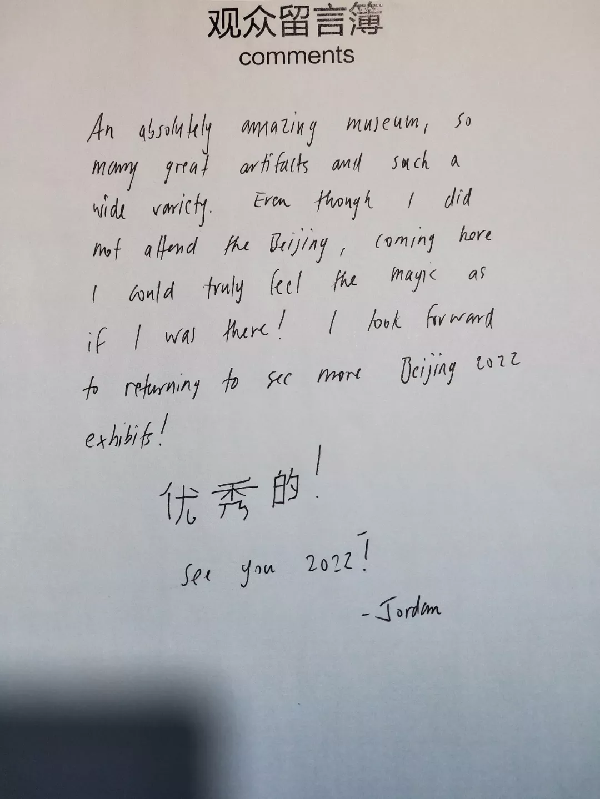 观众留言簿
comments
An absolutely amazing museum, so
many great artifacts and such a
wide variety. Even though I did
not attend the Beijing, coming here
I could truly feel the magic as
if I was there! I look forward
to returning to see more Beijing 2022
exhibits!
优秀的!
see you 2022!
-Jordan